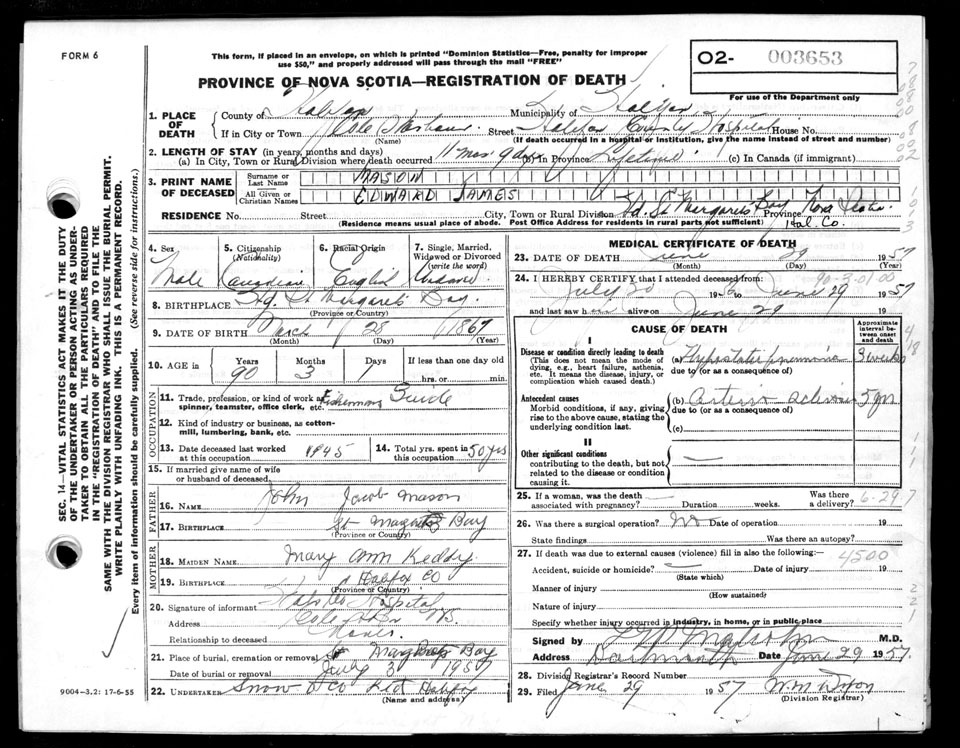 FORM 6
This form, if placed in an envelope, on which is printed "Dominion Statistics—Free, penalty for improper
use $50," and properly addressed will pass through the mail "FREE"
PROVINCE OF NOVA SCOTIA—REGISTRATION OF DEATH
O2- 003653
For use of the Department only
SEC. 14—VITAL STATISTICS ACT MAKES IT THE DUTY
OF THE UNDERTAKER OR PERSON ACTING AS UNDER-
TAKER TO OBTAIN ALL THE PARTICULARS REQUIRED
IN THE "REGISTRATION OF DEATH" AND TO FILE THE
SAME WITH THE DIVISION REGISTRAR WHO SHALL ISSUE THE BURIAL PERMIT.
WRITE PLAINLY WITH UNFADING INK. THIS IS A PERMANENT RECORD.
Every item of information should be carefully supplied. (See reverse side for instructions.)
1. PLACE OF DEATH
County of Halifax Municipality of Halifax
If in City or Town Cole Harbour Street Halifax County Hospital House No.
(Name) (If death occurred in a hospital or institution, give the name instead of street and number)
2. LENGTH OF STAY (in years, months and days)
(a) In City, Town or Rural Division where death occurred 11 mos 9 dys (b) In Province Lifetime (c) In Canada (if immigrant)
3. PRINT NAME OF DECEASED
Surname or Last Name MASON
All Given or Christian Names EDWARD JAMES
RESIDENCE No. Street City, Town or Rural Division Hd. St Margarets Bay Province Nova Scotia
(Residence means usual place of abode. Post Office Address for residents in rural parts not sufficient) Hal. Co.
4. Sex Male
5. Citizenship (Nationality) Canadian
6. Racial Origin English
7. Single, Married, Widowed or Divorced (write the word)
8. BIRTHPLACE Hd. St Margarets Bay.
(Province or Country)
9. DATE OF BIRTH March 28 1867
(Month) (Day) (Year)
10. AGE in Years 90 Months 3 Days 1 If less than one day old
hrs. or min.
OCCUPATION
11. Trade, profession, or kind of work as spinner, teamster, office clerk, etc. Fishermans Guide
12. Kind of industry or business, as cotton-mill, lumbering, bank, etc.
13. Date deceased last worked at this occupation 1945
14. Total yrs. spent in this occupation 50 yrs
15. If married give name of wife or husband of deceased
FATHER
16. NAME John Jacob Mason
17. BIRTHPLACE St Margrets Bay
(Province or Country)
MOTHER
18. MAIDEN NAME Mary Ann Keddy.
19. BIRTHPLACE Halifax Co
(Province or Country)
20. Signature of informant Hospital
Address Cole Hbr NS.
Relationship to deceased
21. Place of burial, cremation or removal St Margrets Bay
Date of burial or removal July 3 1957
22. UNDERTAKER Snow & Co Ltd Halifax
(Name and address)
9004-3.2: 17-6-55
MEDICAL CERTIFICATE OF DEATH
23. DATE OF DEATH June 29 1957
(Month) (Day) (Year)
24. I HEREBY CERTIFY that I attended deceased from: 90-3-01 00
July 20 1956 to June 29 1957
and last saw h im alive on June 29 1957
CAUSE OF DEATH
Approximate interval between onset and death
I
Disease or condition directly leading to death (a) Hypostatic pneumonia 2 weeks
(This does not mean the mode of dying, e.g., heart failure, asthenia, etc. It means the disease, injury, or complication which caused death.)
due to (or as a consequence of)
Antecedent causes (b) Arterio sclerosis 5 yrs
Morbid conditions, if any, giving rise to the above cause, stating the underlying condition last.
due to (or as a consequence of)
(c)
II
Other significant conditions
contributing to the death, but not related to the disease or condition causing it.
25. If a woman, was the death associated with pregnancy? Duration weeks. Was there a delivery?
6-29 7
26. Was there a surgical operation? No Date of operation 19
State findings Was there an autopsy?
27. If death was due to external causes (violence) fill in also the following:— 4500
Accident, suicide or homicide? Date of injury 19
(State which)
Manner of injury
(How sustained)
Nature of injury
Specify whether injury occurred in industry, in home, or in public place
Signed by M.D.
Address Dartmouth Date June 29 1957.
28. Division Registrar's Record Number
29. Filed June 29 1957 W. M. Dixon
(Division Registrar)